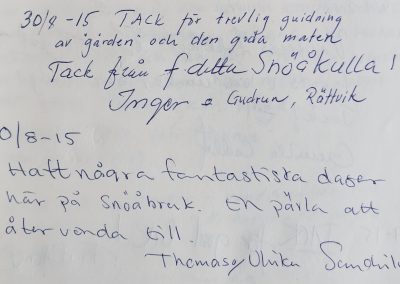 30/8-15 TACK för trevlig guidning
av "gården" och den goda maten
Tack från f detta Snöåkulla!
Inger o Gudrun, Rättvik
0/8-15
Haft några fantastiska dager
här på Snöåbruk. En pärla att
åter vända till.
Thomas o Ulrika